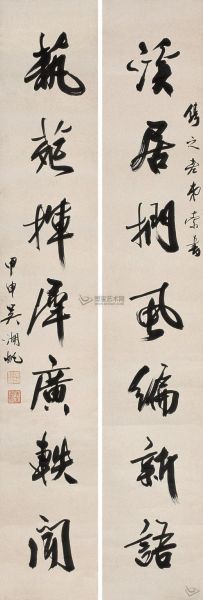 雋之老弟索書
溪居捫虱編新語
蓺苑揮犀廣軼聞
甲申吴湖帆